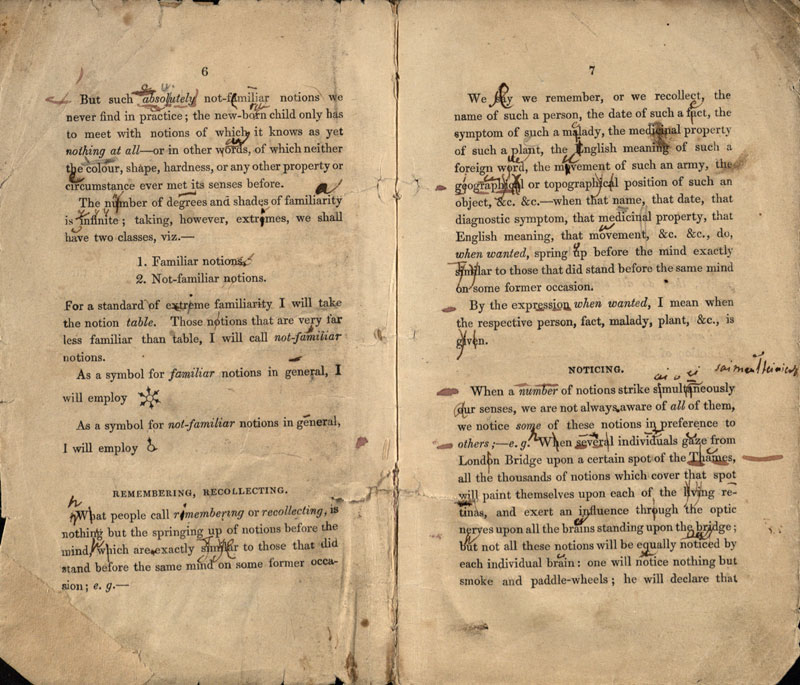 6
But such absolutely not-familiar notions we
never find in practice; the new-born child only has
to meet with notions of which it knows as yet
nothing at all—or in other words, of which neither
the colour, shape, hardness, or any other property or
circumstance ever met its senses before.
The number of degrees and shades of familiarity
is infinite; taking, however, extremes, we shall
have two classes, viz.—
1. Familiar notions.
2. Not-familiar notions.
For a standard of extreme familiarity I will take
the notion table. Those notions that are very far
less familiar than table, I will call not-familiar
notions.
As a symbol for familiar notions in general, I
will employ
As a symbol for not-familiar notions in general,
I will employ
REMEMBERING, RECOLLECTING.
What people call remembering or recollecting, is
nothing but the springing up of notions before the
mind, which are exactly similar to those that did
stand before the same mind on some former occa-
sion; e. g.—
7
We say we remember, or we recollect, the
name of such a person, the date of such a fact, the
symptom of such a malady, the medicinal property
of such a plant, the English meaning of such a
foreign word, the movement of such an army, the
geographical or topographical position of such an
object, &c. &c.—when that name, that date, that
diagnostic symptom, that medicinal property, that
English meaning, that movement, &c. &c., do,
when wanted, spring up before the mind exactly
similar to those that did stand before the same mind
on some former occasion.
By the expression when wanted, I mean when
the respective person, fact, malady, plant, &c., is
given.
NOTICING.
When a number of notions strike simultaneously
our senses, we are not always aware of all of them,
we notice some of these notions in preference to
others;—e. g. When several individuals gaze from
London Bridge upon a certain spot of the Thames,
all the thousands of notions which cover that spot
will paint themselves upon each of the living re-
tinas, and exert an influence through the optic
nerves upon all the brains standing upon the bridge;
but not all these notions will be equally noticed by
each individual brain: one will notice nothing but
smoke and paddle-wheels; he will declare that